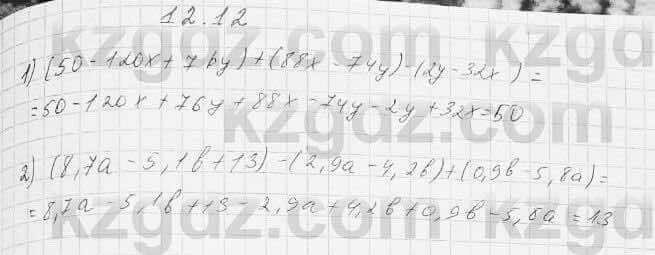 12.12
1) (50 - 120x + 76y) + (88x - 74y) - (2y - 32x) =
= 50 - 120x + 76y + 88x - 74y - 2y + 32x = 50
2) (8,7a - 5,1b + 13) - (2,9a - 4,2b) + (0,9b - 5,8a) =
= 8,7a - 5,1b + 13 - 2,9a + 4,2b + 0,9b - 5,8a = 13
kzgdz.com kzgdz.com
kzgdz.com
kzgdz.com
kzgdz.com kzgdz.com